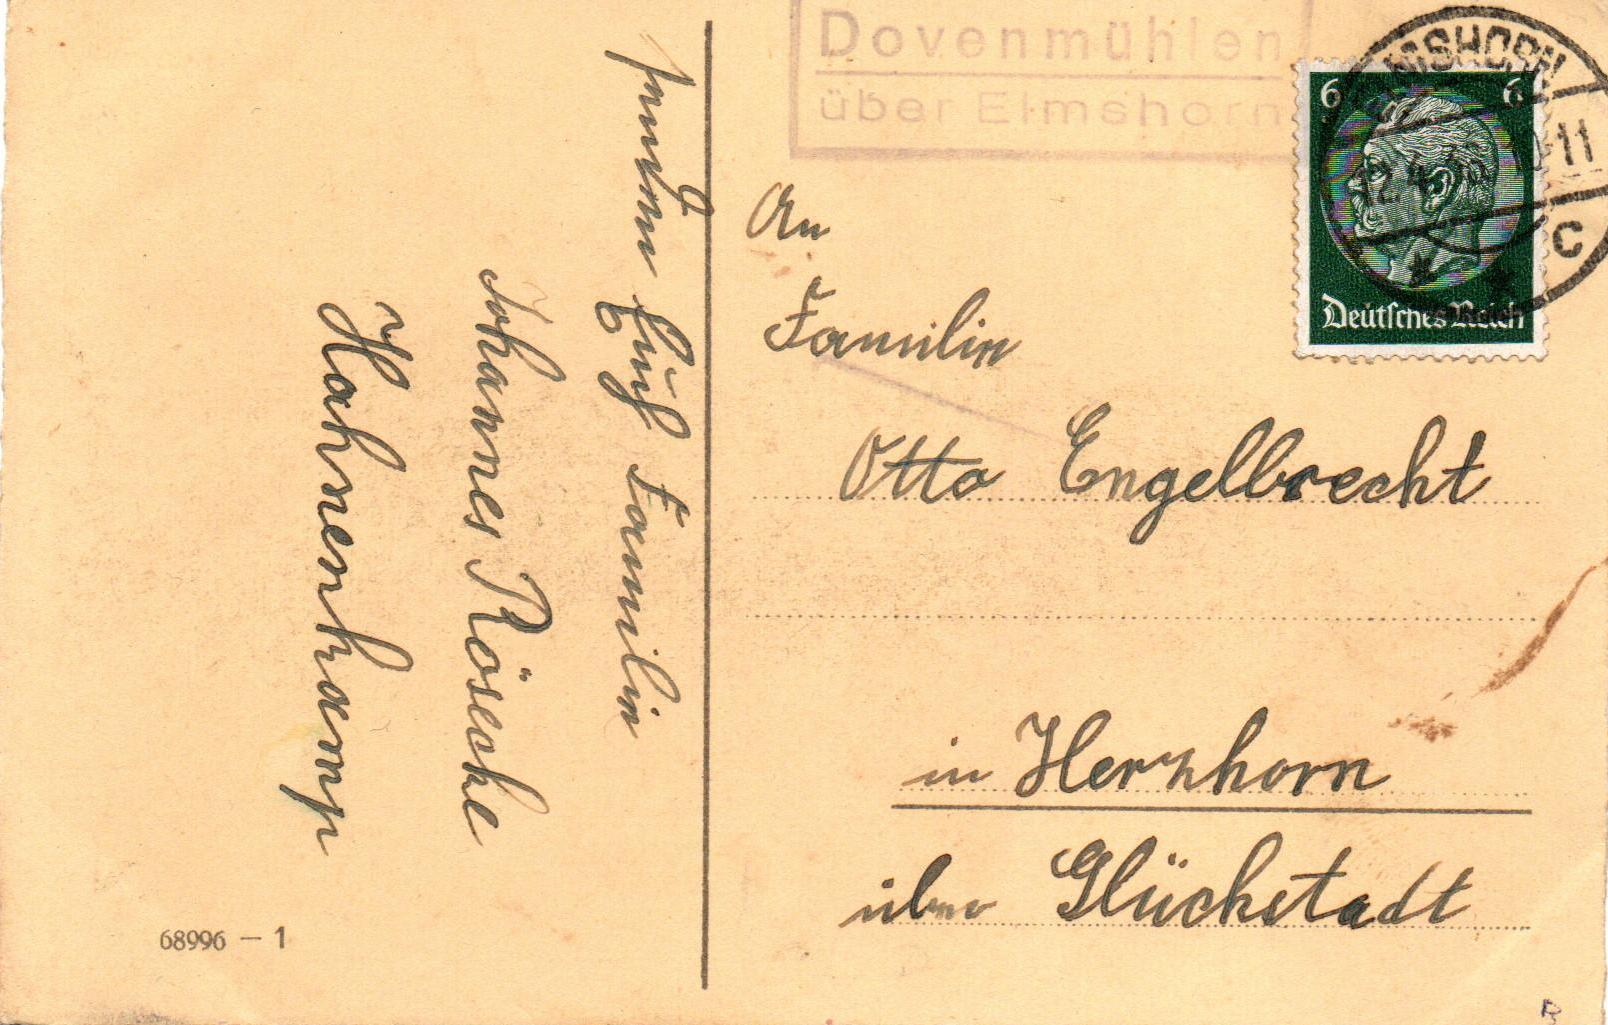 Dovenmühlen
über Elmshorn
ELMSHORN
10-11
C
6 6
Deutsches Reich
An
Familie
Otto Engelbrecht
in Herzhorn
über Glückstadt
senden Euch Familie
Johannes Rösecke
Hahnenkamp
68996 - 1